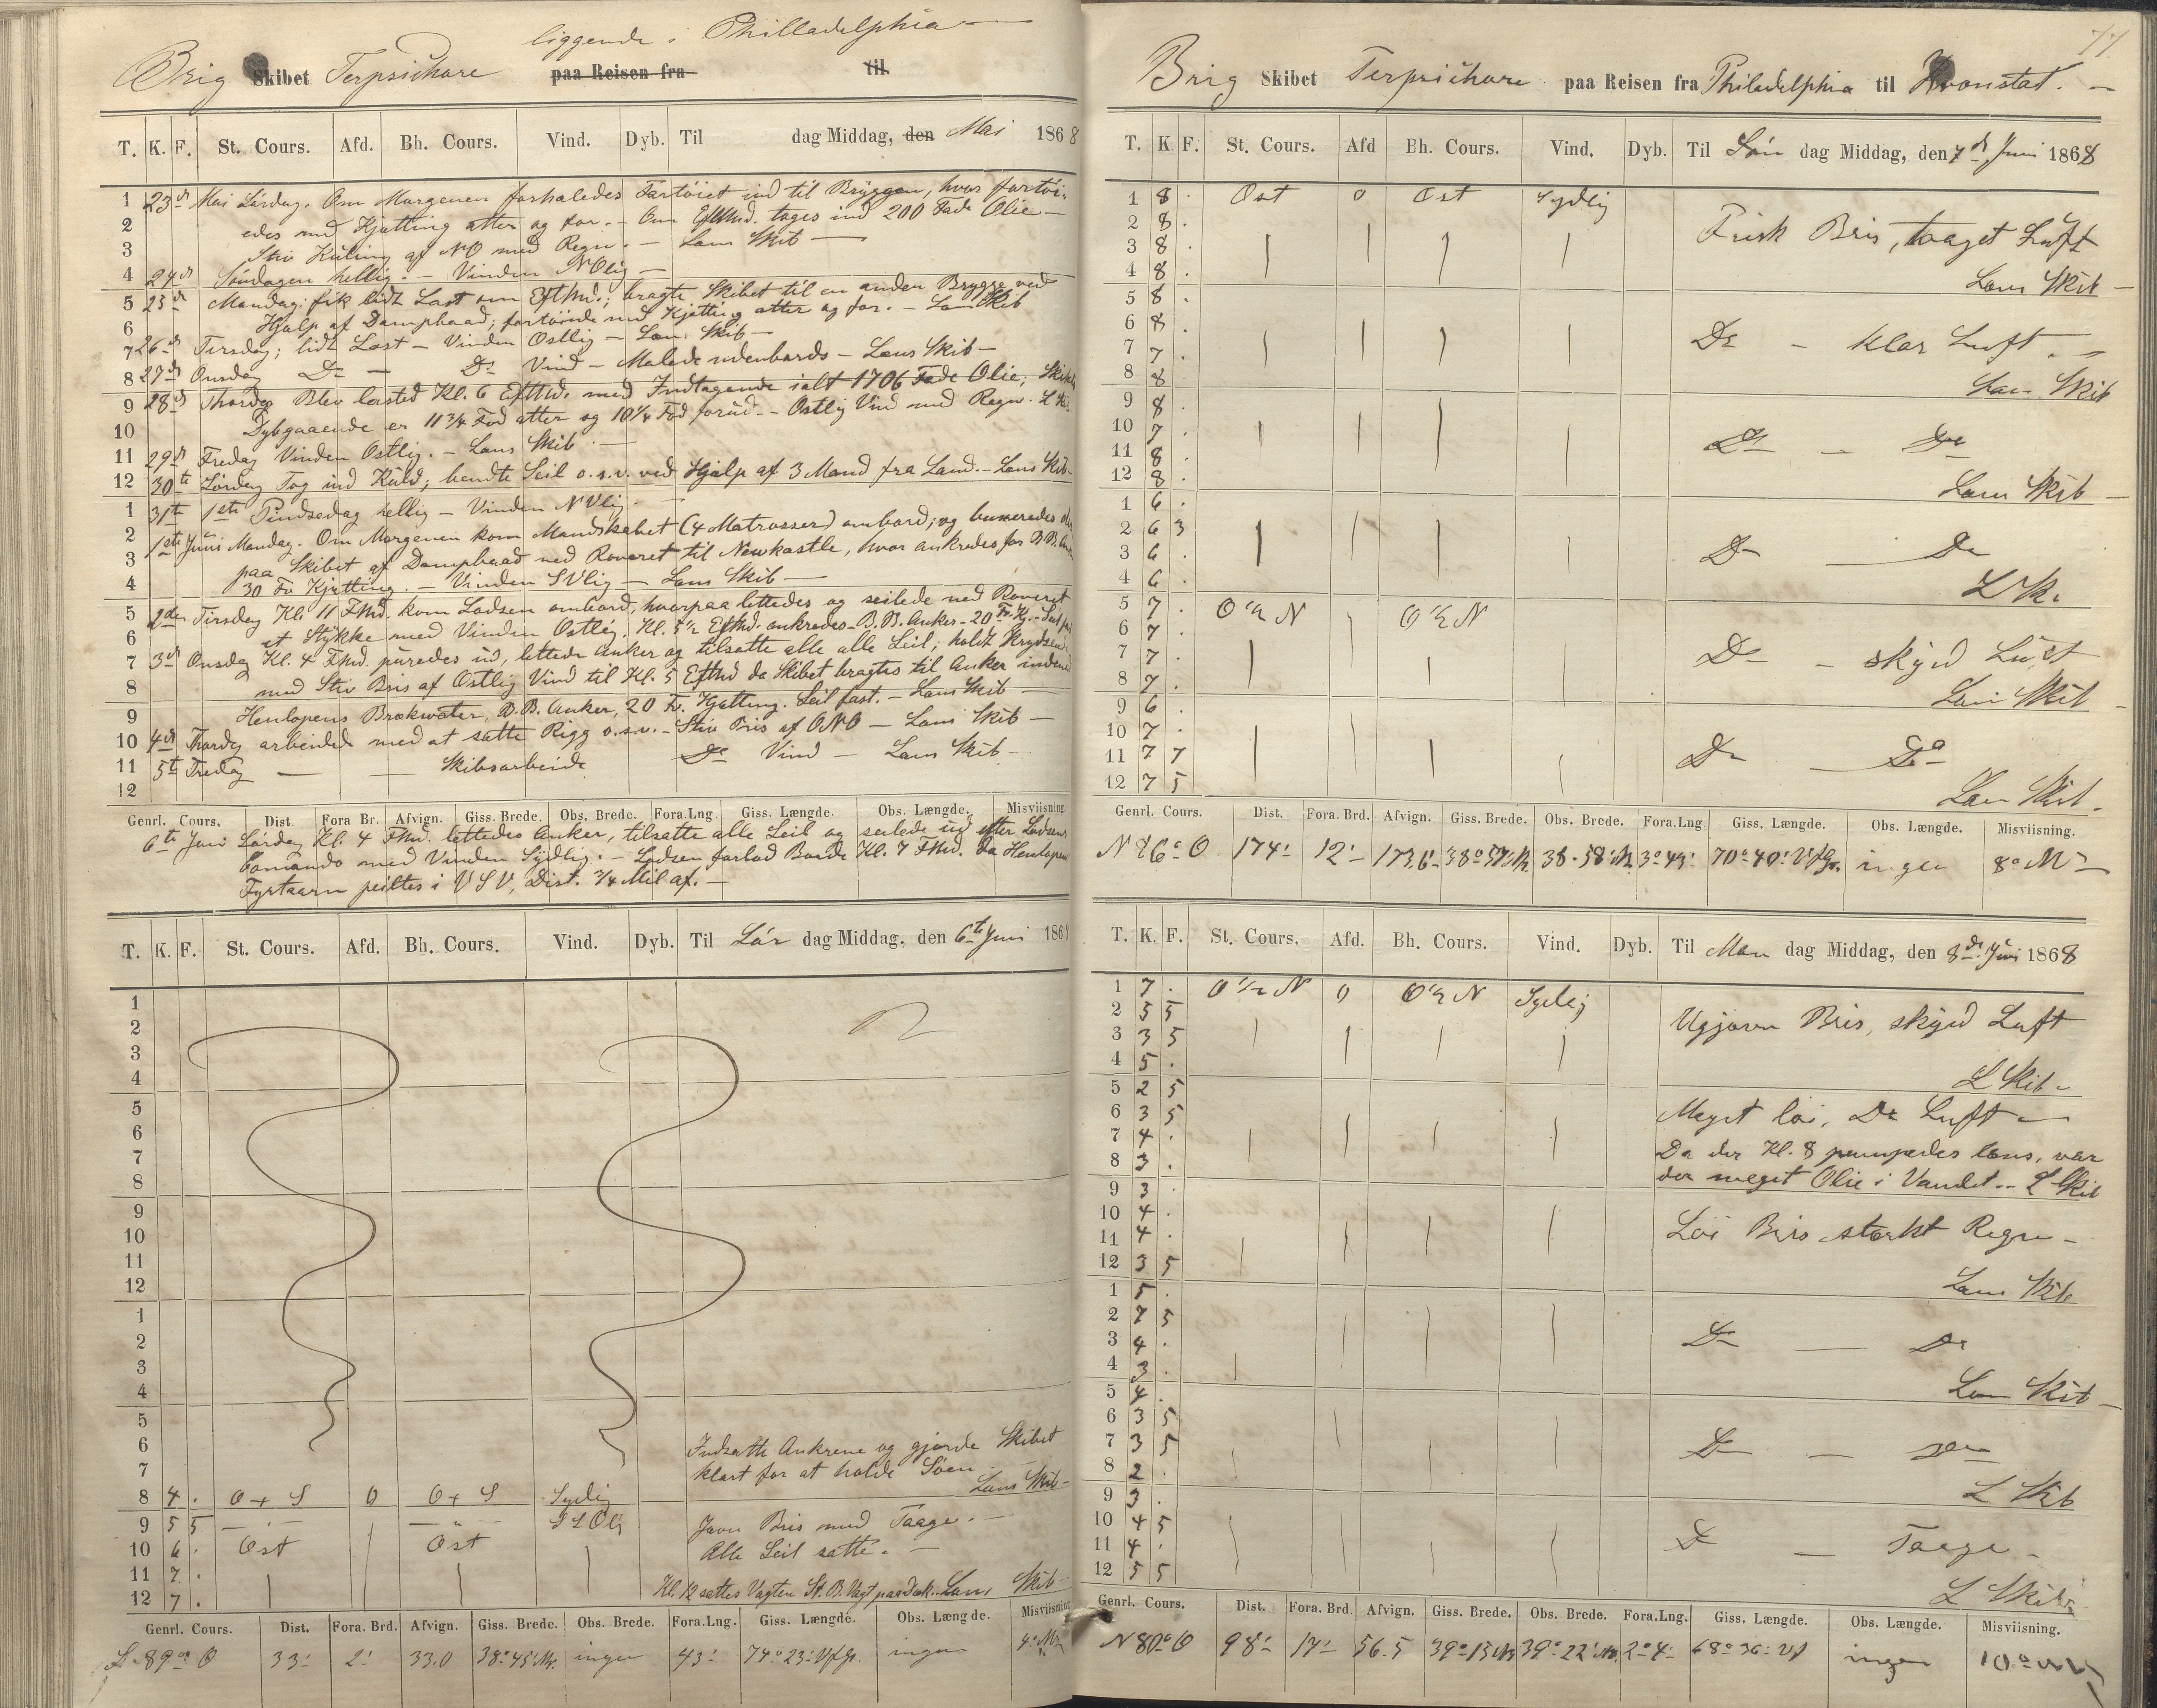 liggende i Philladelphia
Brig Skibet Terpsichore paa Reisen fra til
T. K. F. St. Cours. Afd. Bh. Cours. Vind. Dyb. Til dag Middag, den Mai 1868
1 23d Mai Lördag. Om Morgenen forhaledes Fartöiet ind til Bryggen, hvor fortöi-
2 edes med Kjætting atter og for. - Om EftMd. toges ind 200 Fade Olie -
3 Stiv Kuling af NO med Regn. - Læns Skib -
4 24d Söndagen hellig. - Vinden NOlig -
5 25d Mandag: fik lidt Last om EftMd.; bragte Skibet til en anden Brygge ved
6 Hjælp af Dampbaad; fortöiede med Kjætting atter og for. - Læns Skib
7 26d Tirsdag; lidt Last - Vinden Ostlig - Læns Skib -
8 27d Onsdag Do - Do Vind - Malede udenbords - Læns Skib -
9 28d Thorsdag Blev lastet Kl. 6 EftMd. med Indtagende ialt 1706 Fade Olie; Skibets
10 Dybgaaende er 11 3/4 Fod atter og 10 1/4 Fod forud. - Ostlig Vind med Regn. L Skib
11 29d Fredag Vinden Ostlig. - Læns Skib -
12 30te Lördag Tog ind Kuld; bendte Seil o.s.v. ved Hjælp af 3 Mand fra Land. - Læns Skib -
1 31te 1ste Pindsedag hellig - Vinden NVlig -
2 1ste Juni Mandag. Om Morgenen kom Mandskabet (4 Matrosser) ombord; og buxeredes
3 paa Skibet af Dampbaad ned Reveret til Newkastle, hvor ankredes for B.B. Anker
4 30 Fv Kjætting. - Vinden SVlig - Læns Skib -
5 2den Tirsdag Kl. 11 FMd. kom Lodsen ombord, hvorpaa lettedes og seilede ned Reveret
6 et Stykke med Vinden Ostlig. Kl. 5 1/2 EftMd. ankredes - B.B. Anker - 20 Fv. Kj. -
7 3d Onsdag Kl. 4 FMd. purredes ud, lettede Anker og tilsatte alle alle Seil; holdt Krydsende
8 med Stiv Bris af Ostlig Vind til Kl. 5 EftMd da Skibet bragtes til Anker indenfor
9 Henlopens Brækwater, B.B. Anker, 20 Fv. Kjætting. Seil fast. - Læns Skib -
10 4d Thorsdag arbeidede med at sætte Rigg o.s.v. - Stiv Bris af ONO - Læns Skib -
11 5te Fredag - - Skibsarbeide Do Vind - Læns Skib -
12
Genrl. Cours. Dist. Fora Br. Afvign. Giss. Brede. Obs. Brede. Fora.Lng Giss. Længde. Obs. Længde. Misviisning
6te Juni Lördag Kl. 4 FMd. lettedes Anker, tilsatte alle Seil og seilede ud efter Lodsens
Comando med Vinden Sydlig. - Lodsen forlod Borde Kl. 7 FMd. da Henlopen
Fyrtaarn peiltes i VSV, Dist. 3/4 Mil af. -
T. K. F. St. Cours. Afd. Bh. Cours. Vind. Dyb. Til Lör dag Middag, den 6te Juni 1868
1
2
3
4
5
6
7
8
9
10
11
12
1
2
3
4
5
6 Indsatte Ankrene og gjorde Skibet
7 klart for at holde Söen
8 4 . O + S 0 O + S Sydlig Læns Skib -
9 5 5 - " - - " - SSOlig Jævn Bris med Taage. -
10 6 . Ost Ost Alle Seil satte. -
11 7 .
12 7 . Kl. 12 sattes Vagten St. B. Vagt paa Dæk. Læns Skib -
Genrl. Cours. Dist. Fora. Brd. Afvign. Giss. Brede. Obs. Brede. Fora.Lng. Giss. Længde. Obs. Længde. Misviisning
S. 89° O 33' 2' 33.0 38° 45' Nr. ingen 43' 74° 23' Vf Gr. ingen 4°
77
Brig Skibet Terpsichore paa Reisen fra Philadelphia til Kronstat. -
T. K. F. St. Cours. Afd Bh. Cours. Vind. Dyb. Til Sön dag Middag, den 7d Juni 1868
1 8 . Ost 0 Ost Sydlig
2 8 . Frisk Bris, taaget Luft
3 8 .
4 8 . Læns Skib -
5 8 .
6 8 . Do - klar Luft. -
7 7 .
8 8 . Læns Skib
9 8 .
10 7 . Do - Do
11 8 .
12 8 . Læns Skib -
1 6 .
2 6 3
3 6 . Do - Do
4 6 . L Sk.
5 7 . O 1/2 N O 1/2 N
6 7 .
7 7 . Do - skyed Luft
8 7 . Læns Skib -
9 6 .
10 7 .
11 7 7 Do - Do
12 7 5 Læns Skib.
Genrl. Cours. Dist. Fora. Brd. Afvign. Giss. Brede. Obs. Brede. Fora.Lng Giss. Længde. Obs. Længde. Misviisning.
N 86° O 174' 12' 173.6' 38° 57' N. 38° 58' N 3° 43' 70° 40' Vf Gr. ingen 8°
T. K. F. St. Cours. Afd. Bh. Cours. Vind. Dyb. Til Man dag Middag, den 8de Juni 1868
1 7 . O 1/2 N 0 O 1/2 N Sydlig
2 5 5 Ujævn Bris, skyed Luft
3 3 5
4 5 . L Skib -
5 2 5
6 3 5 Meget löi, Do Luft -
7 4 . Da der Kl. 8 pumpedes læns, var
8 3 . der meget Olie i Vandet. - L Skib
9 3 .
10 4 . Löi Bris stærkt Regn -
11 4 .
12 3 5 Læns Skib
1 5 .
2 7 5
3 4 . Do - Do
4 3 . Læns Skib -
5 4 .
6 3 5
7 3 5 Do - Do
8 2 . L Skib
9 3 .
10 4 5
11 4 . Do - Taage -
12 5 5 L Skib
Genrl. Cours. Dist. Fora. Brd. Afvign. Giss. Brede. Obs. Brede. Fora.Lng. Giss. Længde. Obs. Længde. Misviisning.
N 80° O 98' 17' 96.5 39° 15' N 39° 22' N. 2° 4' 68° 36' Vf ingen 10°